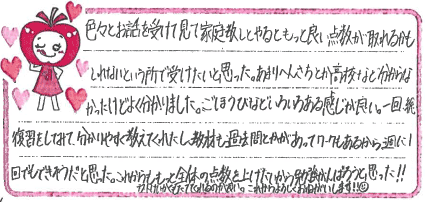 色々とお話を受けて見て家庭教しとやるともっと良い点数が取れるかも
しれないという所で受けたいと思った。あまりへんさちとか高校など分からな
かったけどよく分かりました。ごほうびなどいろいろある感じが良い。一回
復習をしてみて、分かりやすく教えてくれたし、教材も過去問とかがあってワークもあるから週に1
回でもできそうだと思った。これからもっと全体の点数を上げたいから勉強がんばろうと思った!!
これからよろしくおねがいします!!